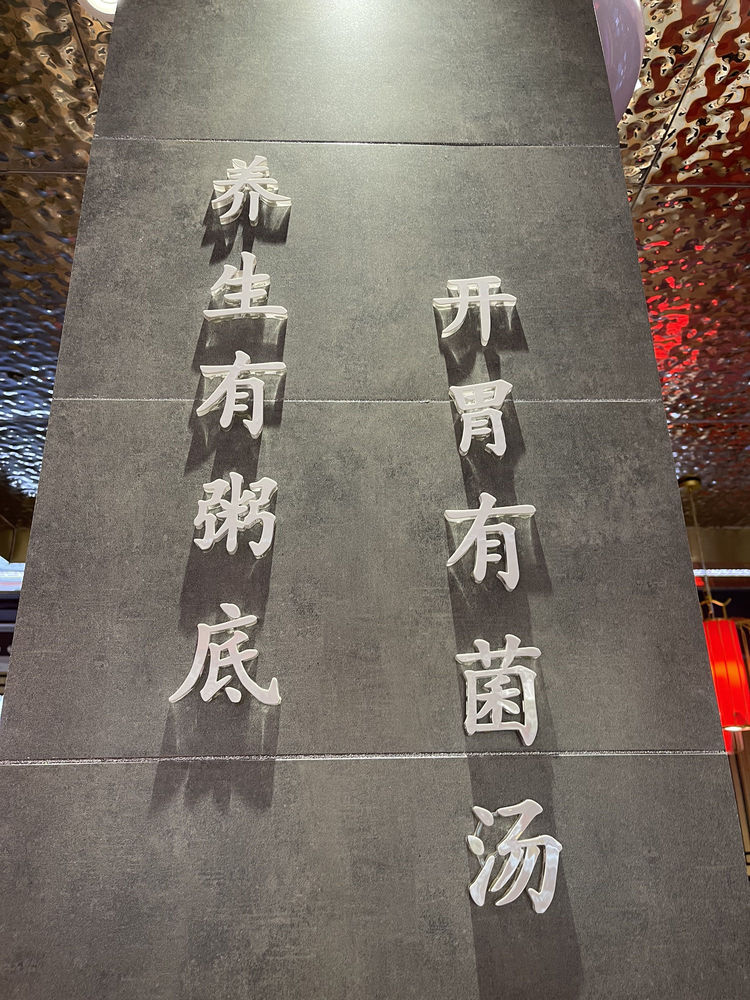 养生有粥底
开胃有菌汤